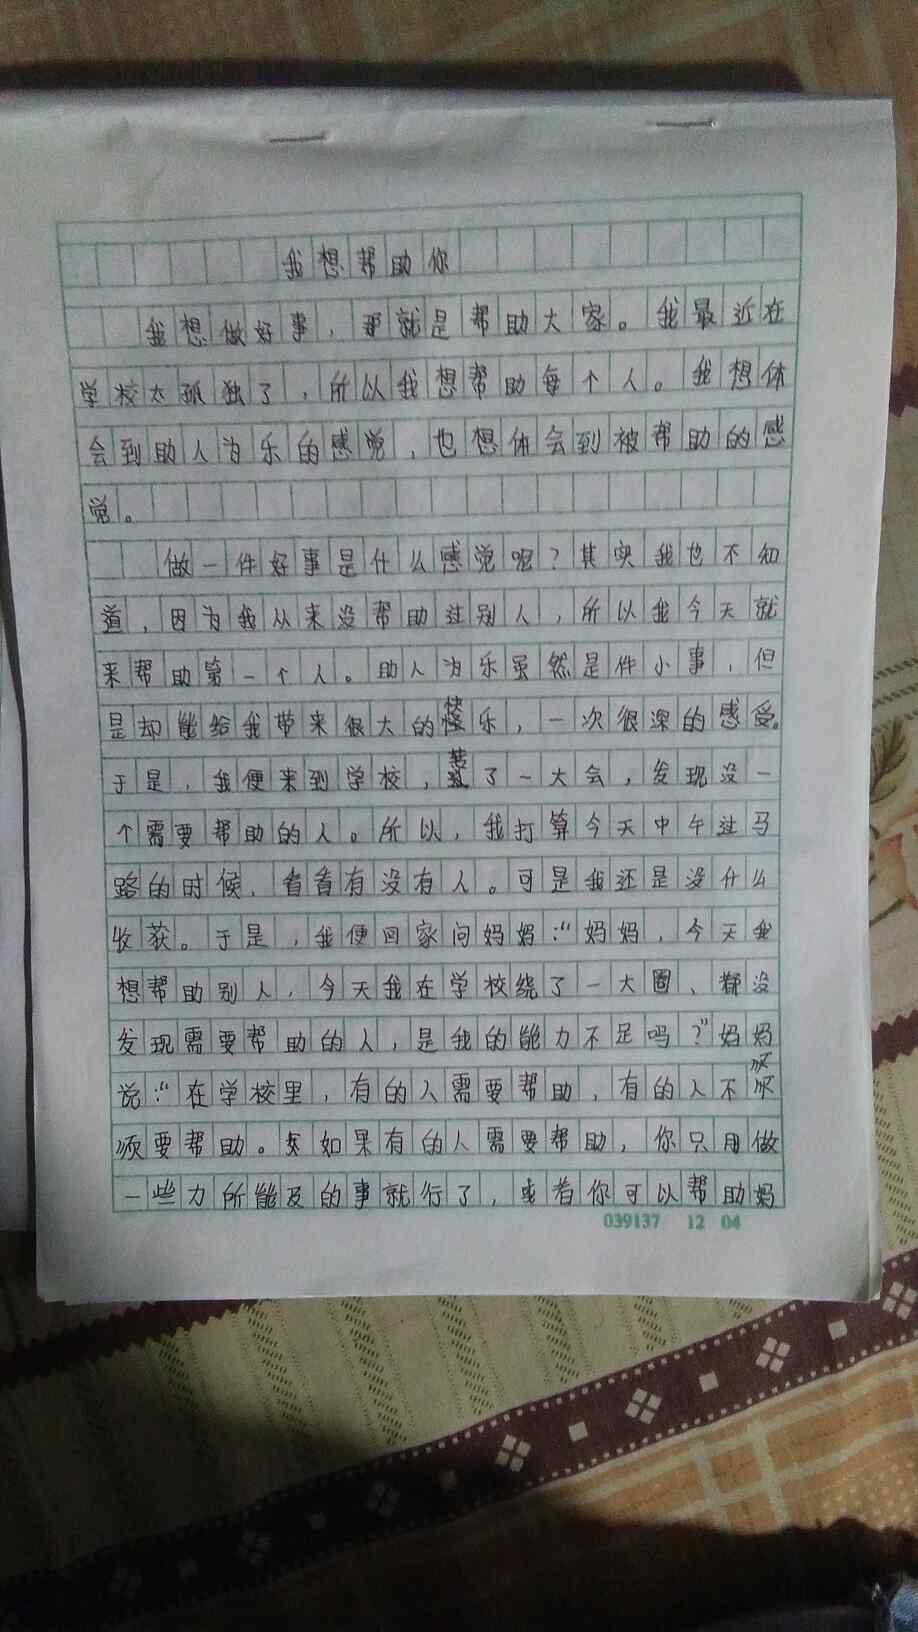 我想帮助你
我想做好事，那就是帮助大家。我最近在
学校太孤独了，所以我想帮助每个人。我想体
会到助人为乐的感觉，也想体会到被帮助的感
觉。
做一件好事是什么感觉呢？其实我也不知
道，因为我从来没帮助过别人，所以我今天就
来帮助第一个人。助人为乐虽然是件小事，但
是却能给我带来很大的快乐，一次很深的感受。
于是，我便来到学校，了一大会，发现没一
个需要帮助的人。所以，我打算今天中午过马
路的时候，看看有没有人。可是我还是没什么
收获。于是，我便回家问妈妈：“妈妈，今天我
想帮助别人，今天我在学校绕了一大圈、都没
发现需要帮助的人，是我的能力不足吗？”妈妈
说：“在学校里，有的人需要帮助，有的人不
须要帮助。如果有的人需要帮助，你只用做
一些力所能及的事就行了，或者你可以帮助妈
039137 12 04